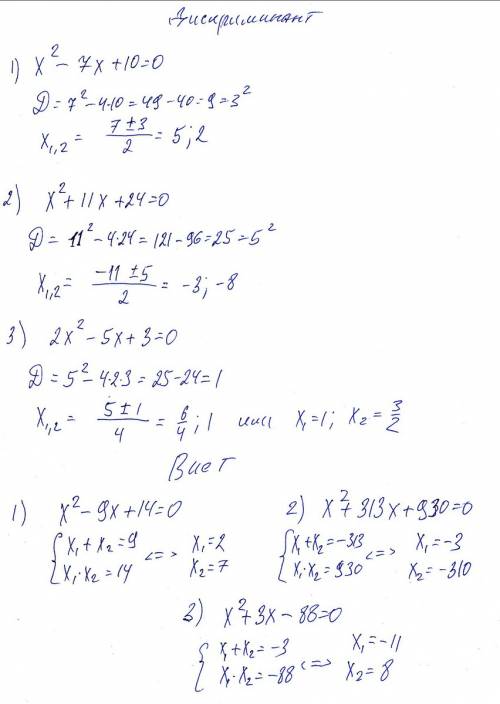 Дискриминант
1) x² - 7x + 10 = 0
Д = 7² - 4·10 = 49 - 40 = 9 = 3²
x₁,₂ = (7 ± 3)/2 = 5; 2
2) x² + 11x + 24 = 0
Д = 11² - 4·24 = 121 - 96 = 25 = 5²
x₁,₂ = (-11 ± 5)/2 = -3; -8
3) 2x² - 5x + 3 = 0
Д = 5² - 4·2·3 = 25 - 24 = 1
x₁,₂ = (5 ± 1)/4 = 6/4; 1 или x₁ = 1; x₂ = 3/2
Виет
1) x² - 9x + 14 = 0
{ x₁ + x₂ = 9 <=> x₁ = 2
x₁·x₂ = 14 x₂ = 7
2) x² + 313x + 930 = 0
{ x₁ + x₂ = -313 <=> x₁ = -3
x₁·x₂ = 930 x₂ = -310
3) x² + 3x - 88 = 0
{ x₁ + x₂ = -3 <=> x₁ = -11
x₁·x₂ = -88 x₂ = 8